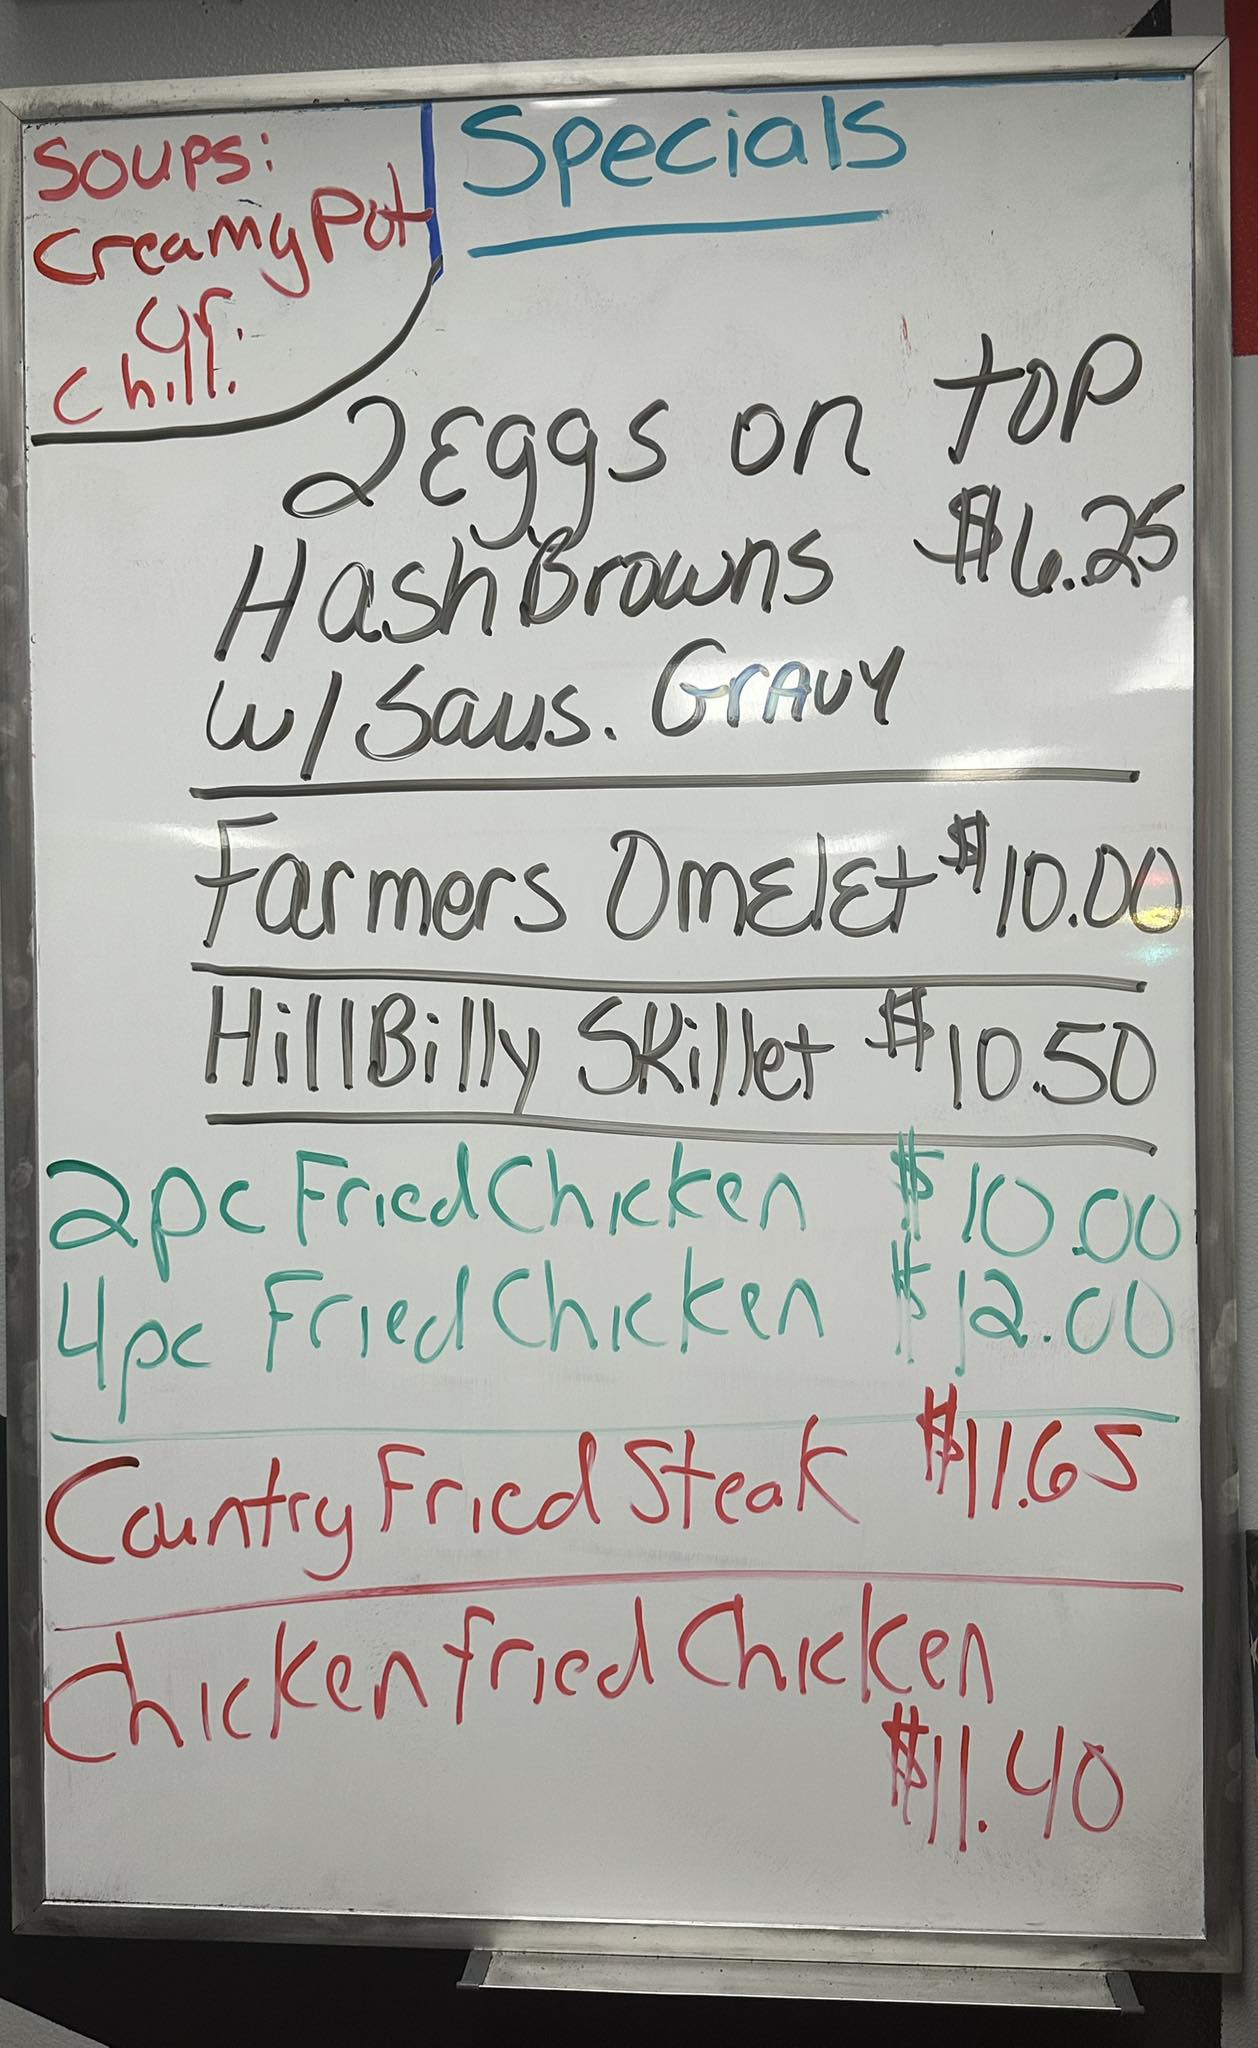 Soups:
Creamy Pot
or
Chili
Specials
2 Eggs on top
HashBrowns $6.25
w/ Saus. Gravy
Farmers Omelet $10.00
HillBilly Skillet $10.50
2pc Fried Chicken $10.00
4pc Fried Chicken $12.00
Country Fried Steak $11.65
Chicken fried Chicken
$11.40